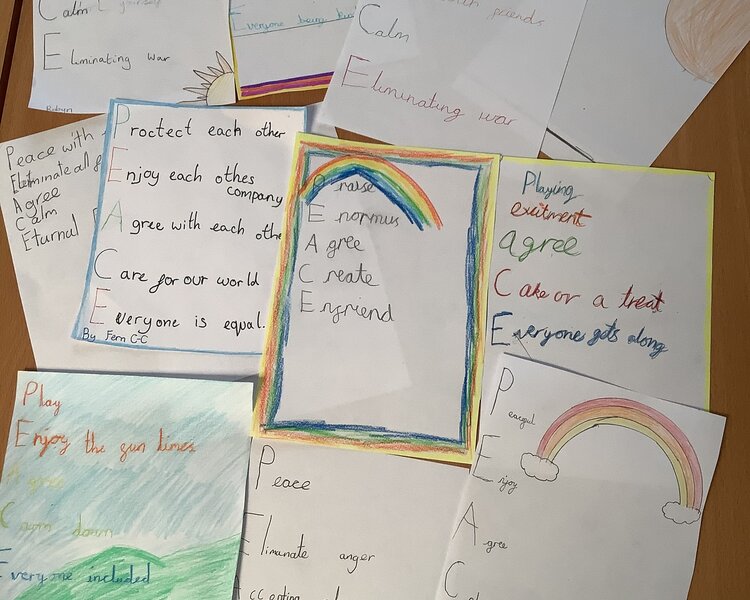 Calm
Eliminating war
Robyn
Everyone being
friends
Calm
Eliminating war
Peace with
Eliminate all
Agree
Calm
Eturnal
Proctect each other
Enjoy each othes
company
Agree with each othe
Care for our world
Everyone is equal.
By Fern C-C
Praise
Enormus
Agree
Create
Enfriend
Playing
exitment
agree
Cake or a treat
Everyone gets along
Play
Enjoy the fun times
Agree
Calm down
Everyone included
Peace
Elimanate anger
Accepting
Peaceful
Enjoy
Agree
C